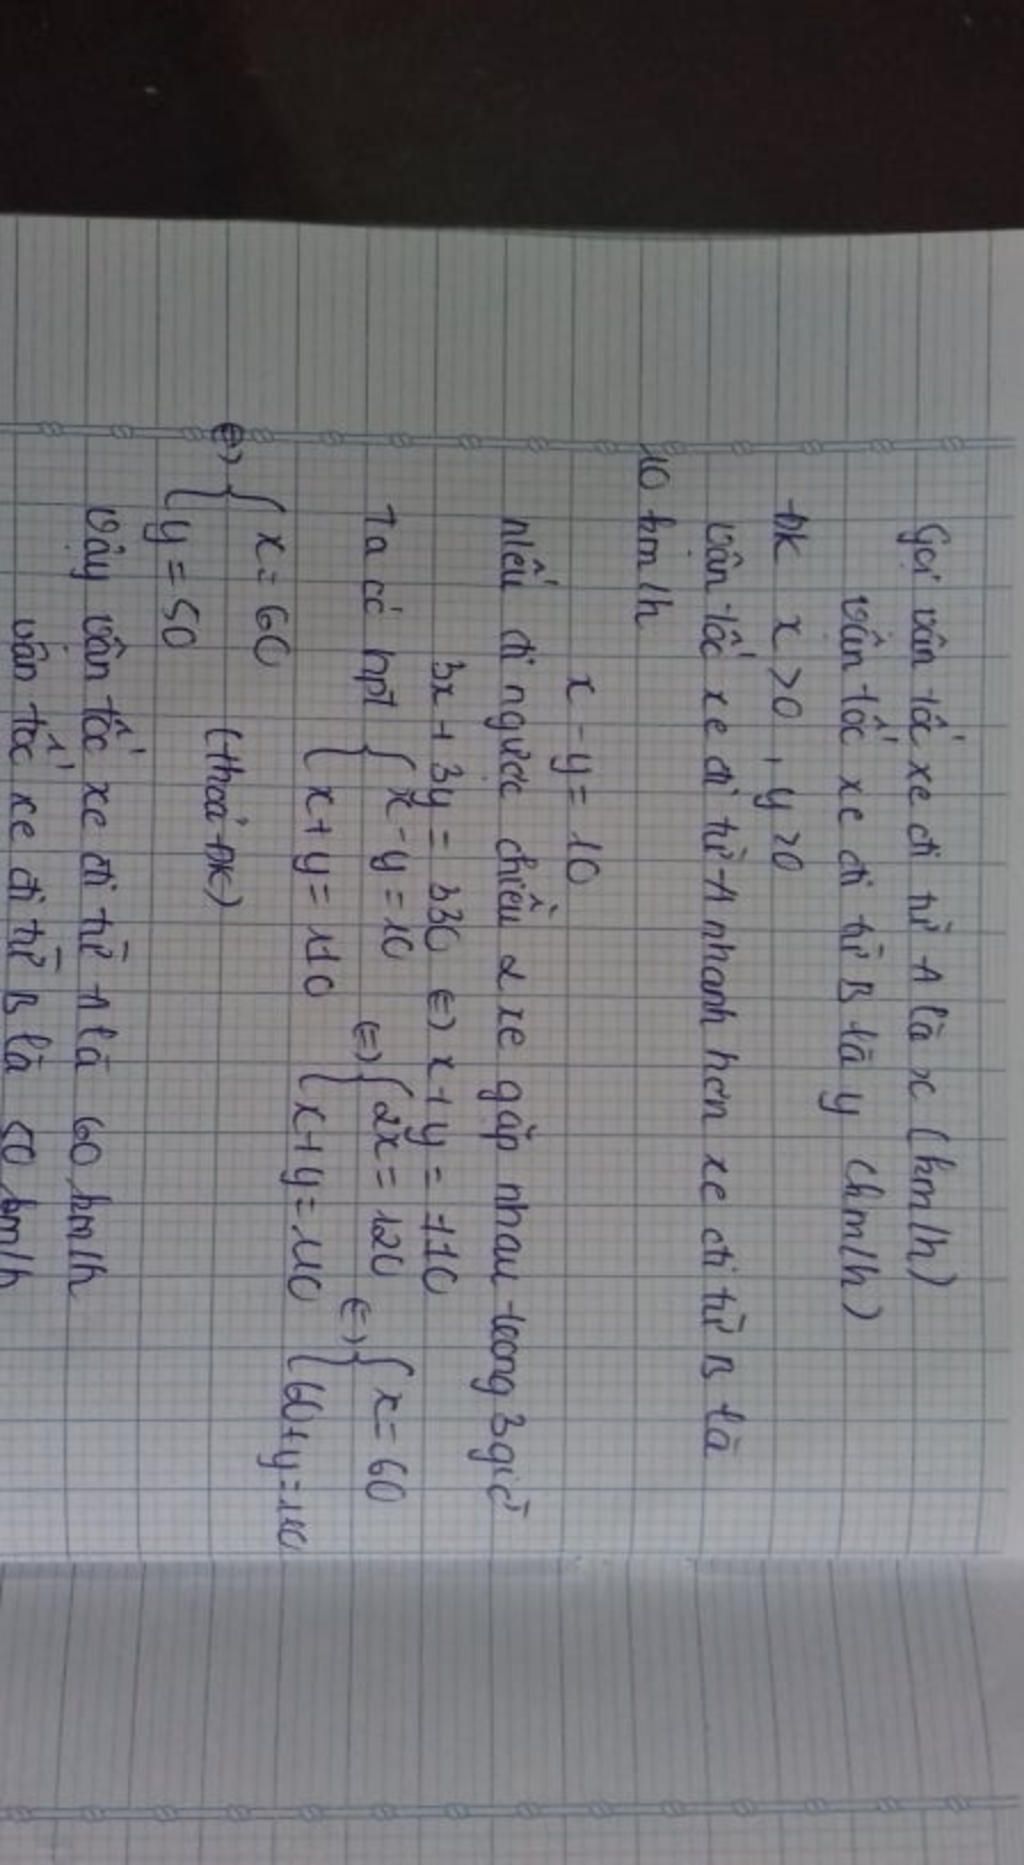 Gọi vân tốc xe đi từ A là x (km/h)
vận tốc xe đi từ B là y (km/h)
ĐK x>0, y>0
vận tốc xe đi từ A nhanh hơn xe đi từ B là
10 km/h
x - y = 10
nếu đi ngược chiều 2 xe gặp nhau trong 3 giờ
3x + 3y = 330 (=) x + y = 110
Ta có hpt { x - y = 10 (=) { 2x = 120 (=) { x = 60
{ x + y = 110 { x + y = 110 { 60 + y = 110
(=) { x = 60
{ y = 50 (thoả ĐK)
Vậy vân tốc xe đi từ A là 60 km/h
vân tốc xe đi từ B là 50 km/h